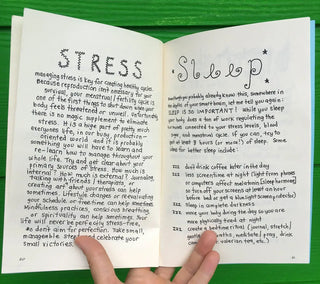 STRESS
managing stress is key for cycling healthy cycles.
Because reproduction isn't necessary for your
survival, your menstrual/fertility cycle is
one of the first things to shut down when your
body feels threatened or unwell. Unfortunately
there is no magic supplement to eliminate
stress. It is a huge part of pretty much
everyone's life, in our busy, production-
oriented world and it is probably
something you will have to learn and
re-learn how to manage throughout your
whole life. Try and get clear about your
primary sources of stress. How much is
internal? How much is external? Journaling,
talking with friends/therapists, or
creating art about your stress can help
sometimes. Lifestyle changes or reevaluating
your schedule or free-time can help sometimes.
Mindfulness practices, conscious breathing,
or spirituality can help sometimes. Your
life will never be perfectly stress-free,
so don't aim for perfection. Take small,
manageable steps and celebrate your
small victories.
Sleep
you probably already know this, somewhere in
the depths of your smart brain, but let me tell you again:
SLEEP IS SO IMPORTANT! While you sleep
your body does a ton of work regulating the
hormones connected to your stress levels, blood
sugar, and menstrual cycle. If you can, try
to get at least 8 (or more!) of sleep. Some
ideas for better sleep include:
zzz don't drink coffee later in the day
zzz less screentime at night (light from phones
or computers affect melatonin (sleep hormone)
so turn off your screens at least an hour
before bed or get a bluelight screen reducer)
zzz Sleep in complete darkness
zzz move your body during the day so you are
more physically tired at night
zzz create a bedtime ritual (journal, stretch/
gentle
valerian tea, etc.)